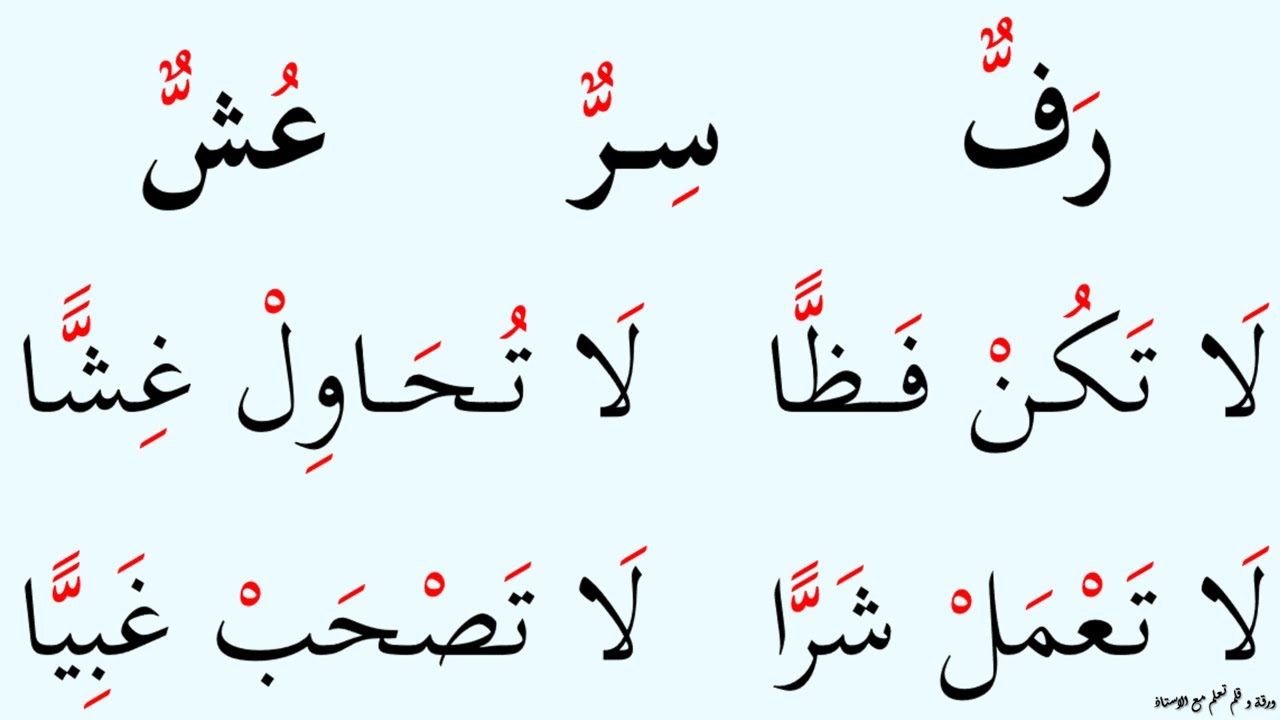 رَفٌّ سِرٌّ عُشٌّ
لَا تَكُنْ فَظًّا لَا تُحَاوِلْ غِشًّا
لَا تَعْمَلْ شَرًّا لَا تَصْحَبْ غَبِيًّا
ورقة و قلم تعلم مع الاستاذ